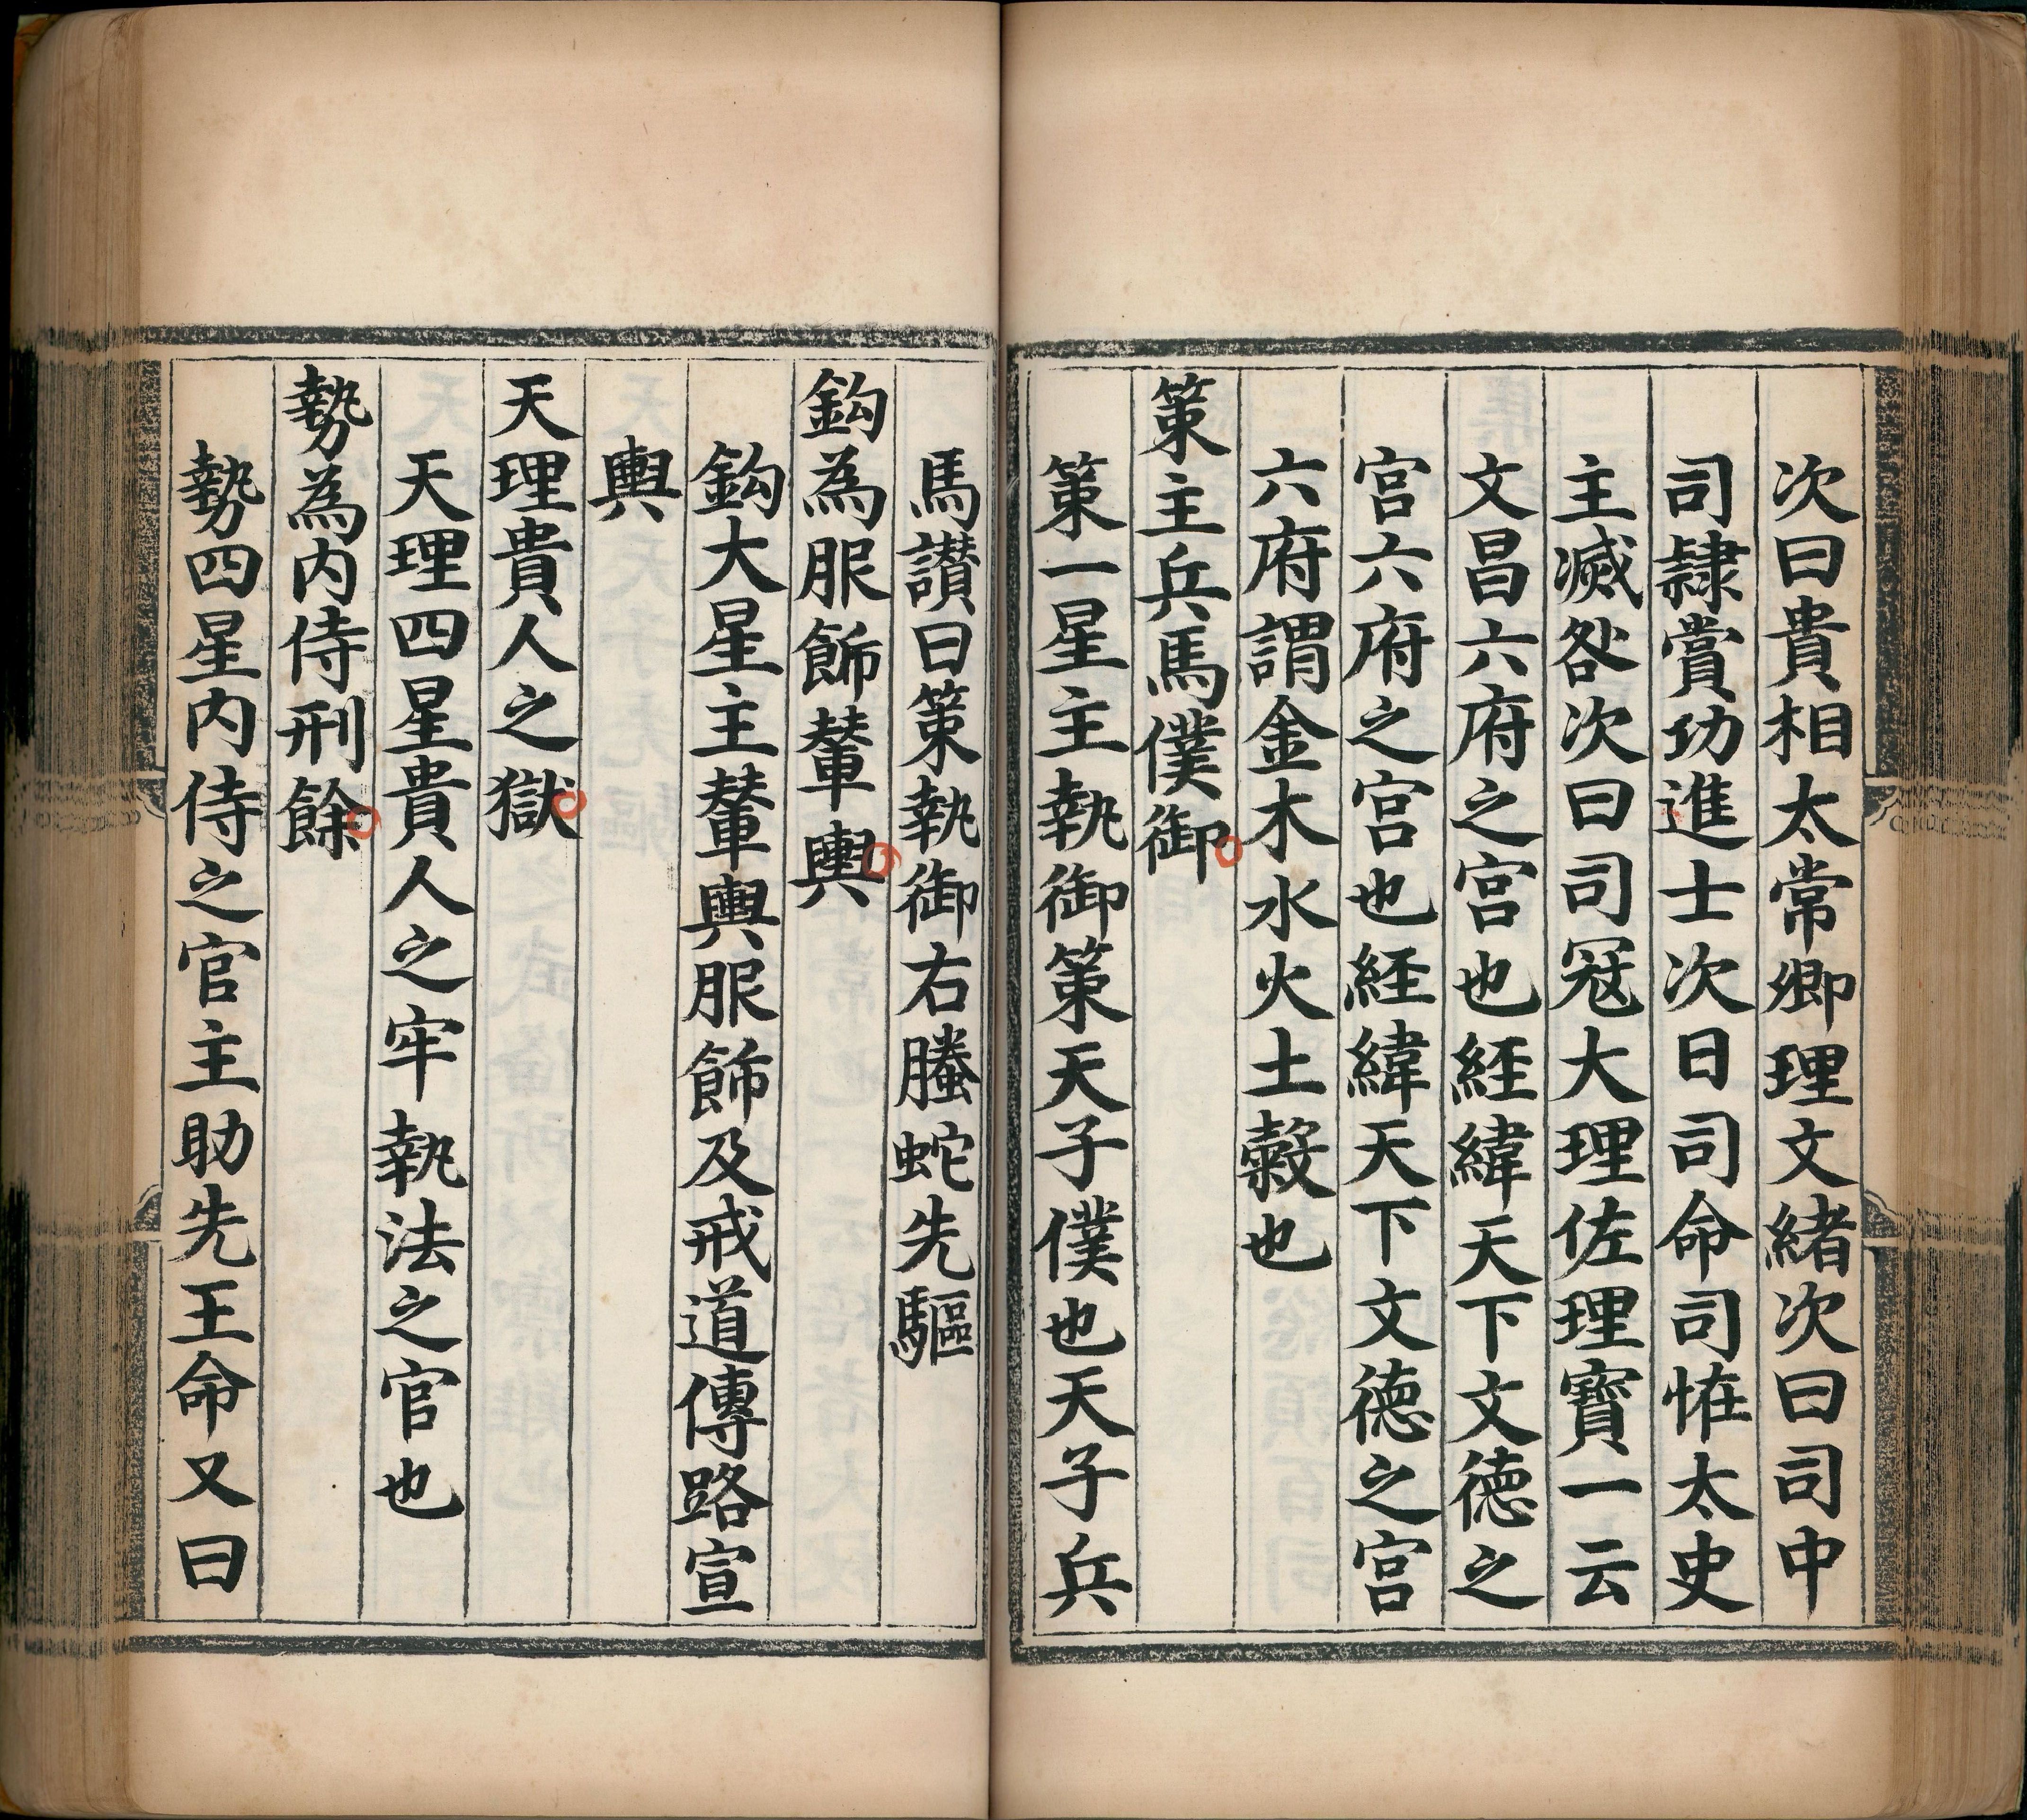 次曰貴相太常卿理文緒次曰司中
司隷賞功進士次日司命司恠太史
主滅咎次曰司冦大理佐理寳一云
文昌六府之宫也経緯天下文徳之
宫六府之宫也経緯天下文徳之宫
六府謂金木水火土榖也
策主兵馬僕御
策一星主執御策天子僕也天子兵
馬讃曰策執御右螣蛇先驅
鈎為服飾輦輿
鈎大星主輦輿服飾及戒道傳路宣
輿
天理貴人之獄
天理四星貴人之牢執法之官也
勢為内侍刑餘
勢四星内侍之官主助先王命又曰